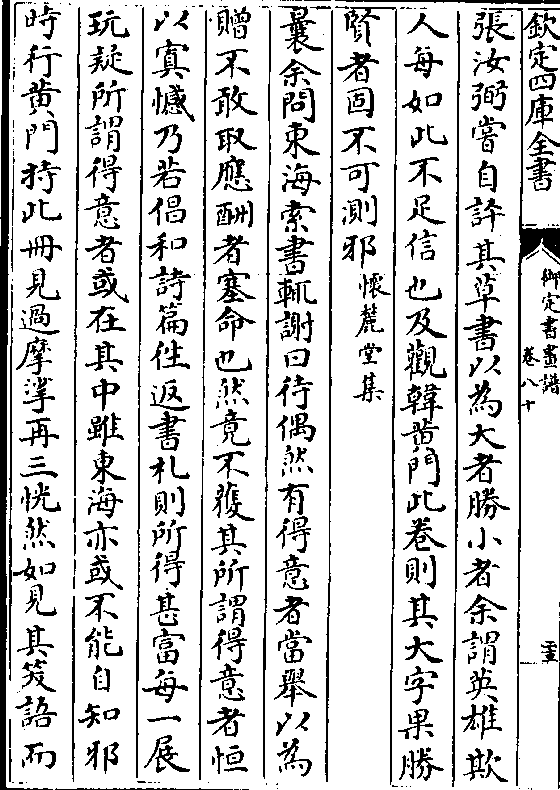 欽定四庫全書
御定書畫譜
卷八十
張汝弼嘗自許其草書以為大者勝小者余謂英雄欺
人每如此不足信也及觀韓黄門此卷則其大字果勝
賢者固不可測邪懷麓堂集
曩余問東海索書輒謝曰待偶然有得意者當舉以為
贈不敢取應酬者塞命也然竟不獲其所謂得意者恒
以寘憾乃若倡和詩篇徃返書札則所得甚富每一展
玩疑所謂得意者或在其中雖東海亦或不能自知邪
時行黄門持此冊見過摩挲再三恍然如見其笑語而